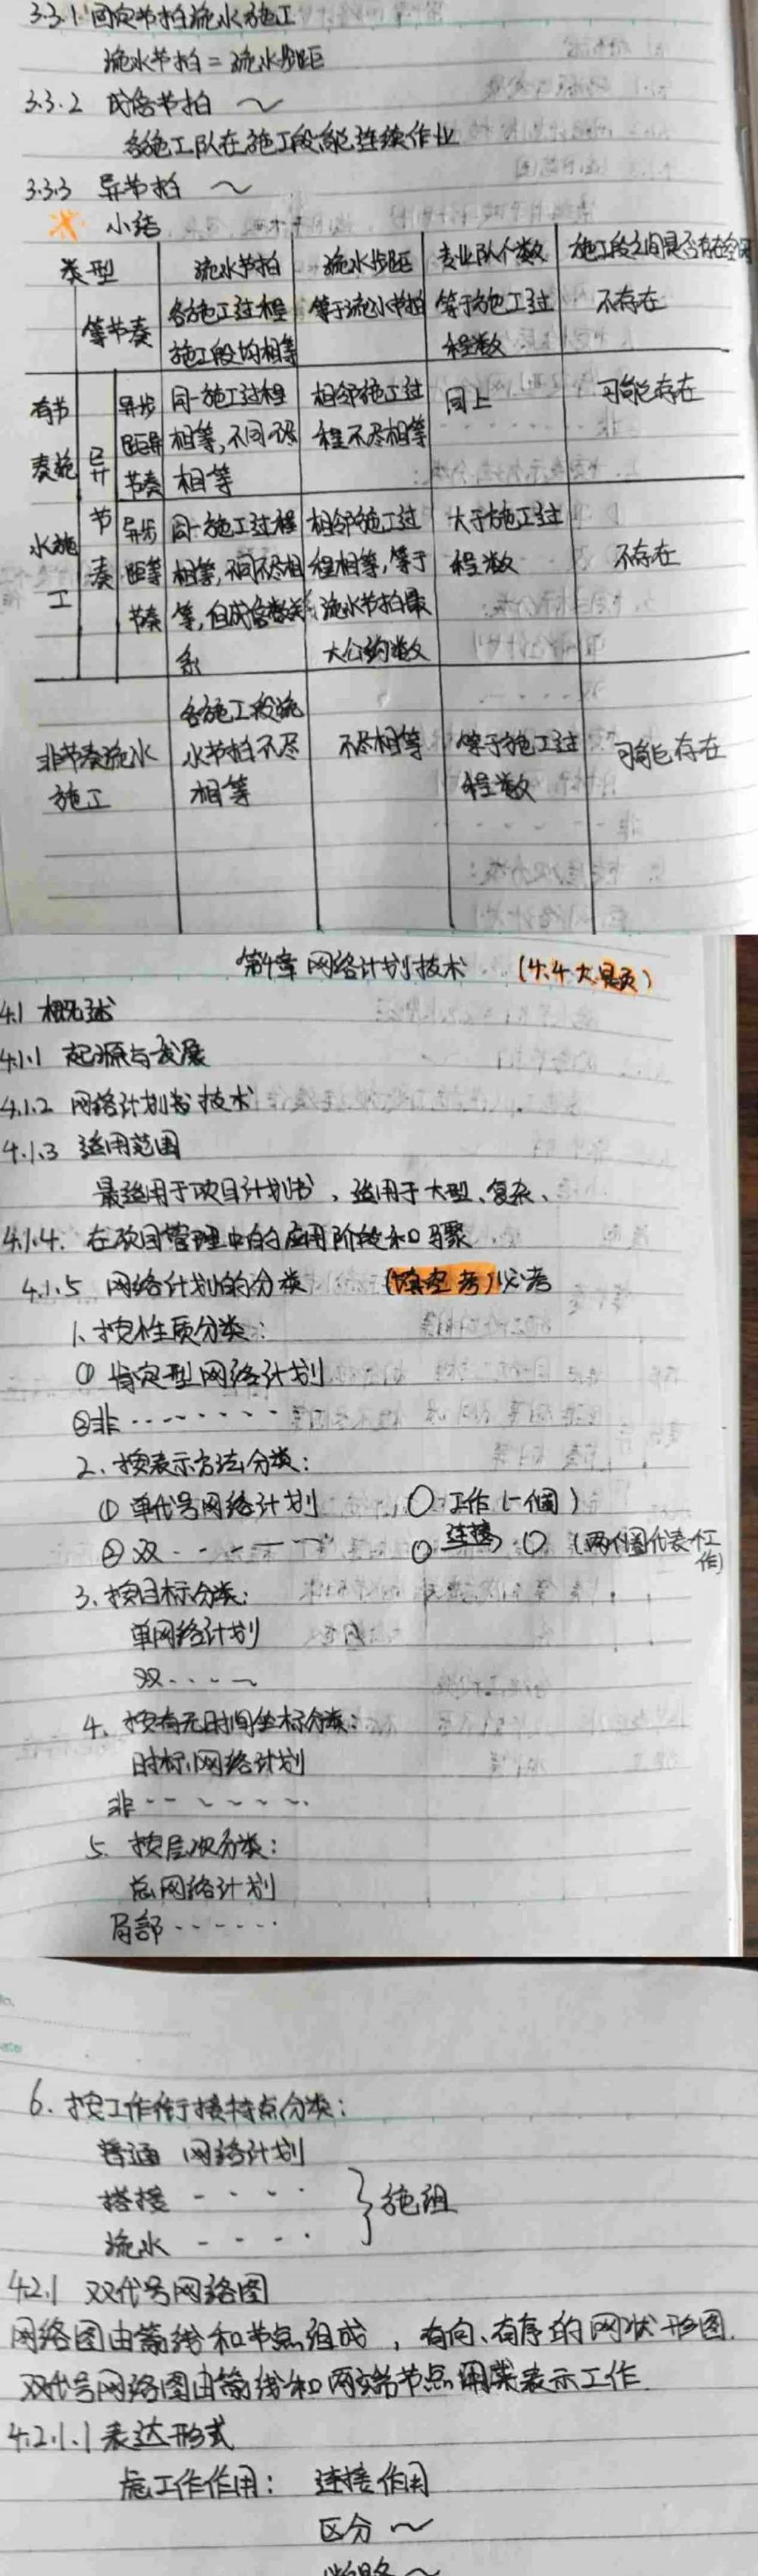 3.3.1 固定节拍流水施工
流水节拍=流水步距
3.3.2 成倍节拍 ～
各施工队在施工段能连续作业
3.3.3 异节拍 ～
小结
类型 流水节拍 流水步距 专业队个数 施工段之间是否存在空闲
等节奏 各施工过程 等于流水节拍 等于施工过 不存在
施工段均相等 程数
有节 异步 同一施工过程 相邻施工过 同上 可能存在
奏流 异 距异 相等,不同不尽 程不尽相等
节奏 相等
水施 节 异步 同一施工过程 相邻施工过 大于施工过
奏 距等 相等,不同不尽相 程相等,等于 程数 不存在
工 节奏 等,但成倍数关 流水节拍最
系 大公约数
各施工段流
非节奏流水 水节拍不尽 不尽相等 等于施工过 可能存在
施工 相等 程数
第4章 网络计划技术 (4.4大题页)
4.1 概述
4.1.1 起源与发展
4.1.2 网络计划技术
4.1.3 适用范围
最适用于项目计划书、适用于大型、复杂、
4.1.4. 在项目管理中的应用阶段和步骤
4.1.5 网络计划的分类 (填空考)必考
1、按性质分类:
① 肯定型网络计划
②非 - - - - - - - -
2、按表示方法分类:
① 单代号网络计划 ○工作(一个圈)
② 双 - - - - - ○ 连接 ○ (两个圈代表个工作)
3、按目标分类:
单网络计划
双 - - - ～
4、按有无时间坐标分类:
时标网络计划
非 - - - - - -
5. 按层次分类:
总网络计划
局部 - - - - - -
6. 按工作衔接特点分类:
普通 网络计划
搭接 - - - - } 施组
流水 - - - -
4.2.1 双代号网络图
网络图由箭线和节点组成,有向、有序的网状形图.
双代号网络图由箭线和两端节点用来表示工作.
4.2.1.1 表达形式
虚工作作用: 连接作用
区分 ～
断路 ～